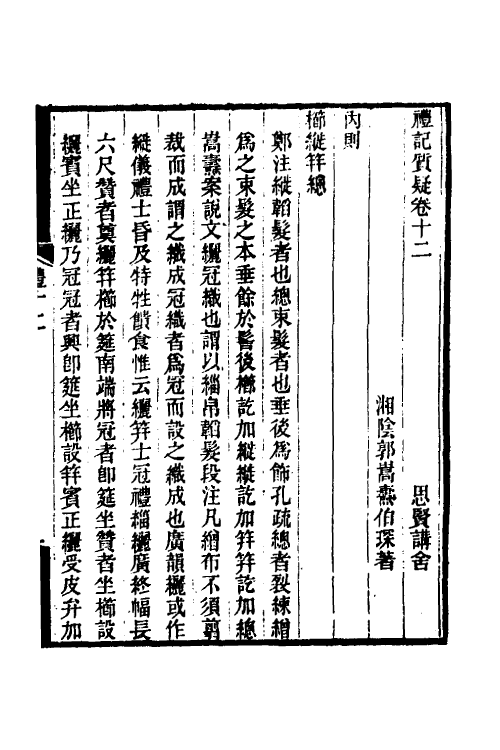 禮記質疑卷十二　思賢講舍
湘陰郭嵩燾伯琛著
內則
櫛縰笄總
鄭注縰韜髮者也總束髮者也垂後爲飾孔疏總者裂練繒
爲之束髮之本垂餘於髻後櫛訖加縰縰訖加笄笄訖加總
嵩燾案說文纚冠織也謂以緇帛韜髮段注凡繒布不須翦
裁而成謂之織成冠織者爲冠而設之織成也廣韻纚或作
縰儀禮士昏及特牲饋食惟云纚笄士冠禮緇纚廣終幅長
六尺贊者奠纚笄櫛於筵南端將冠者卽筵坐贊者坐櫛設
纚賓坐正纚乃冠冠者興卽筵坐櫛設笄賓正纚受皮弁加
禮十二
一